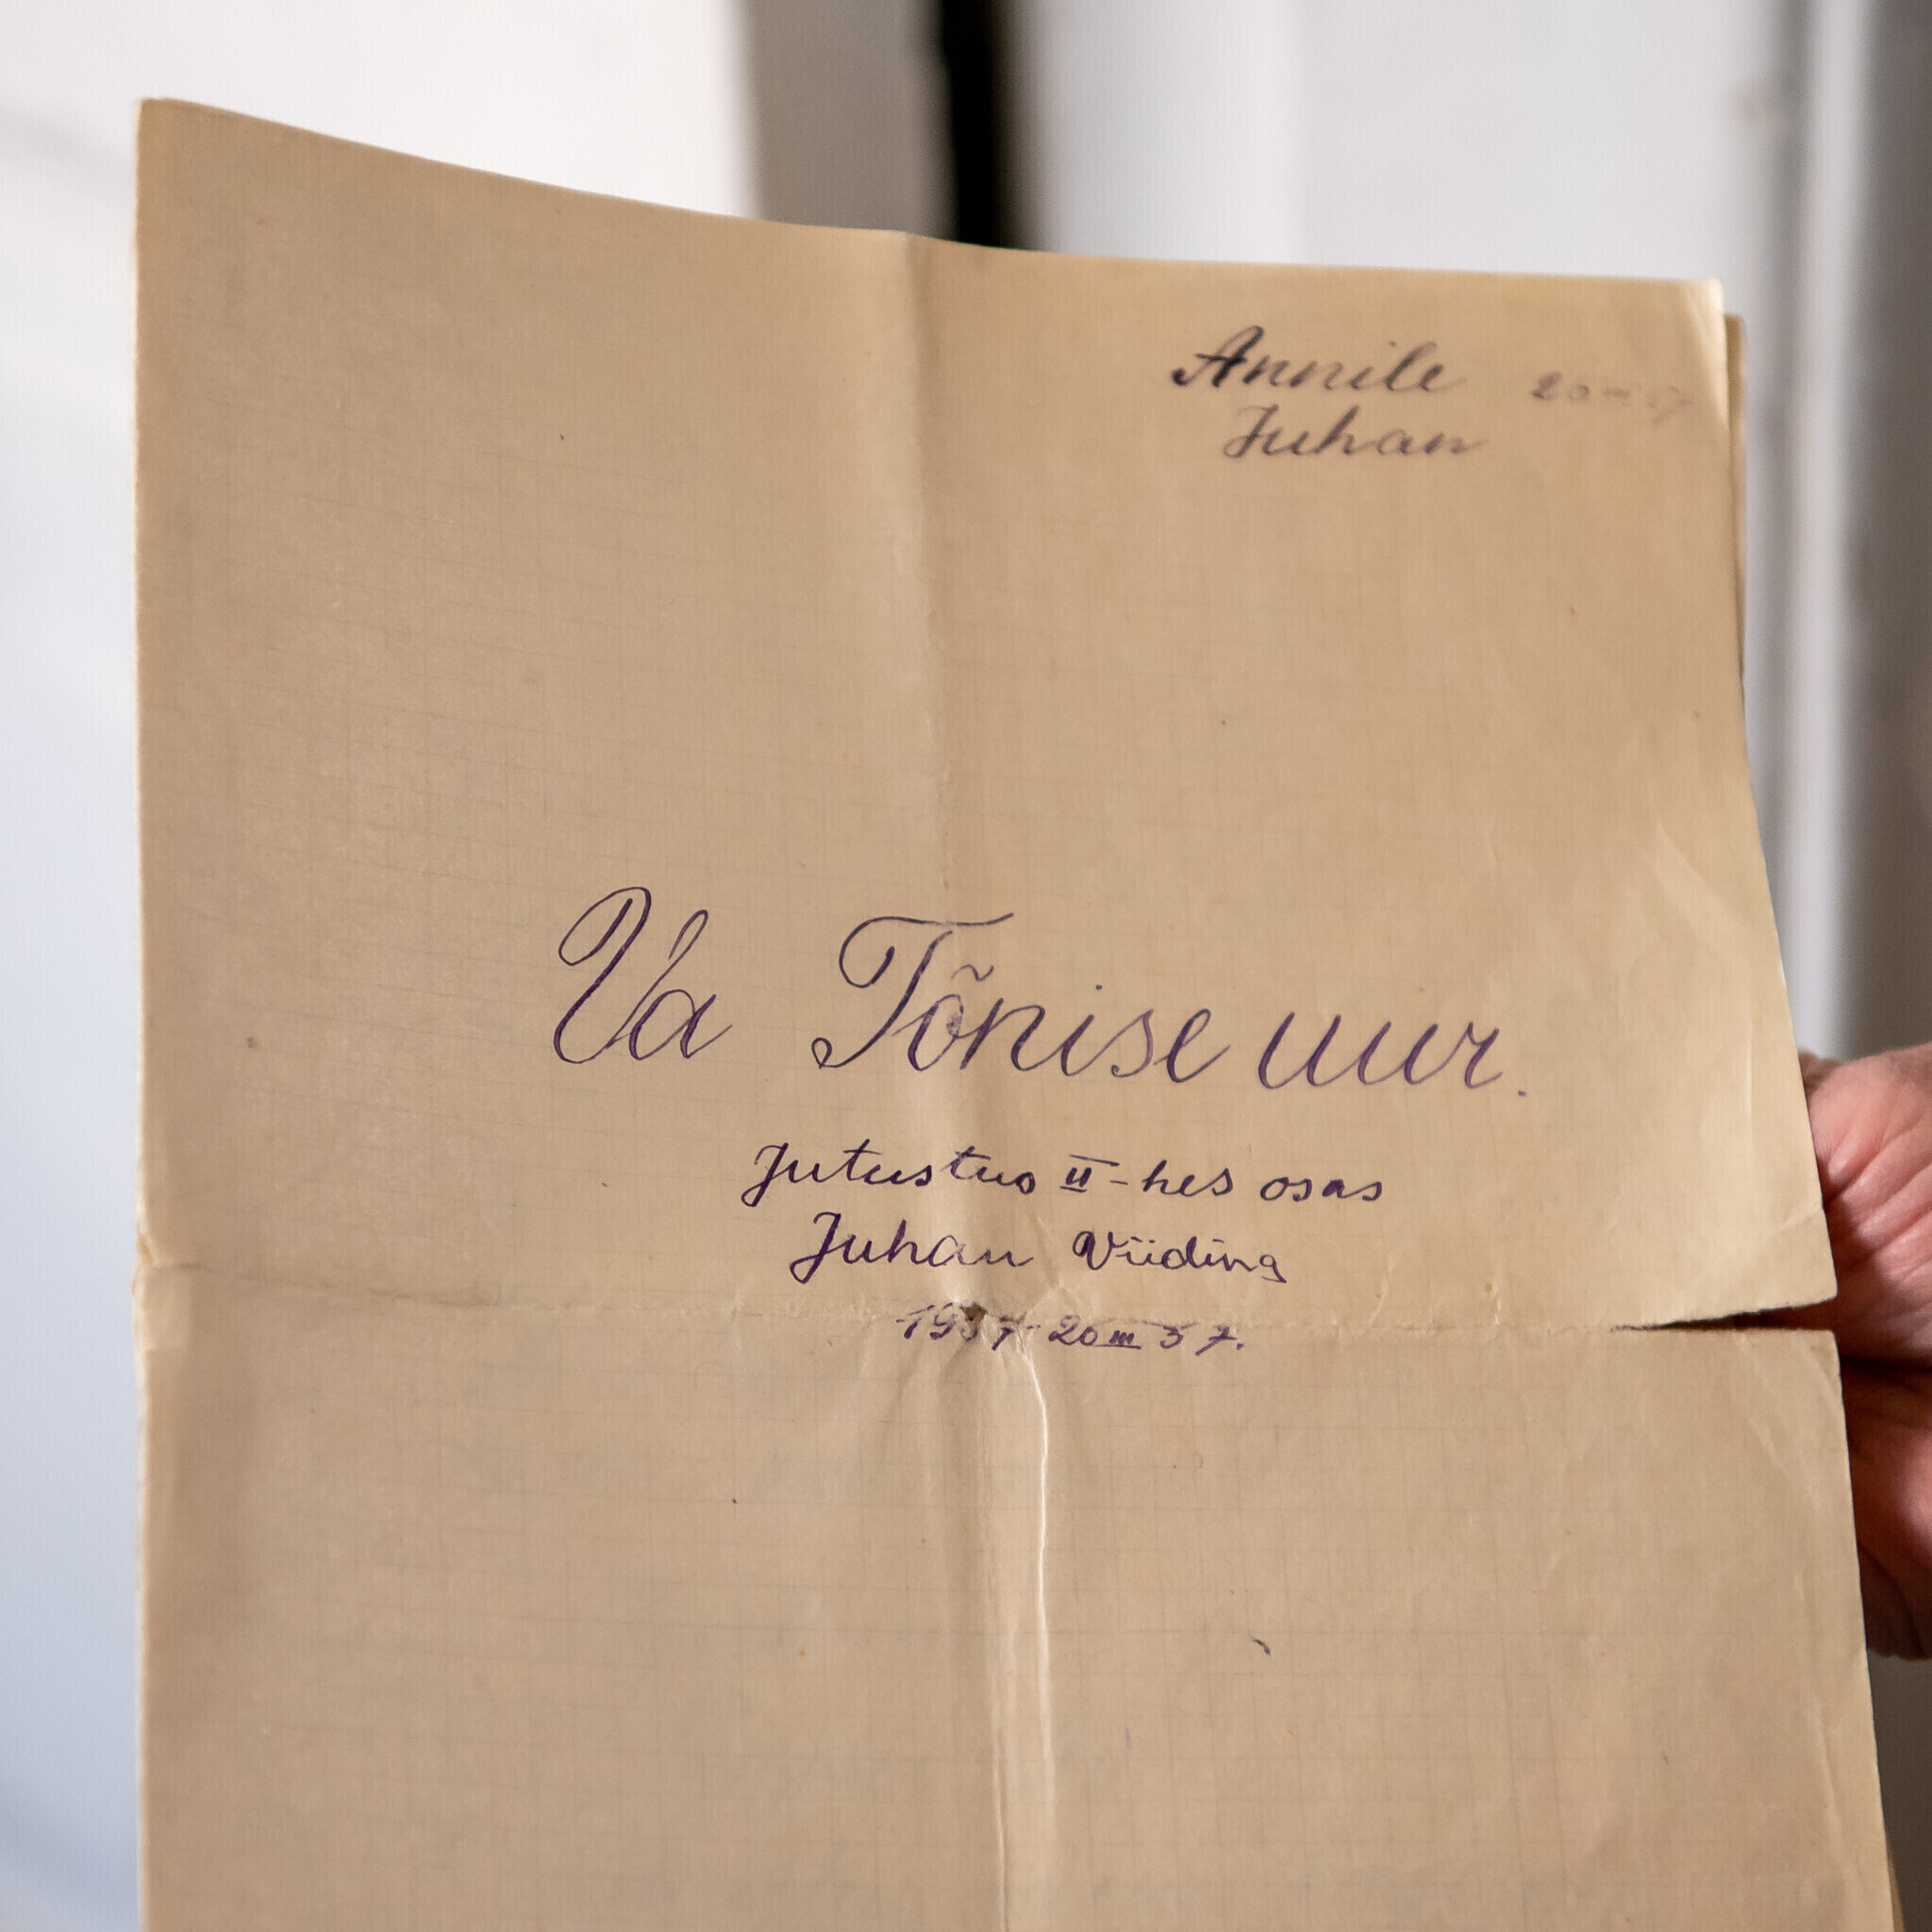 Annile
Juhan
Va Tõnise uur.
Jutustus II-hes osas
Juhan Viiding
1937 20 III 37.